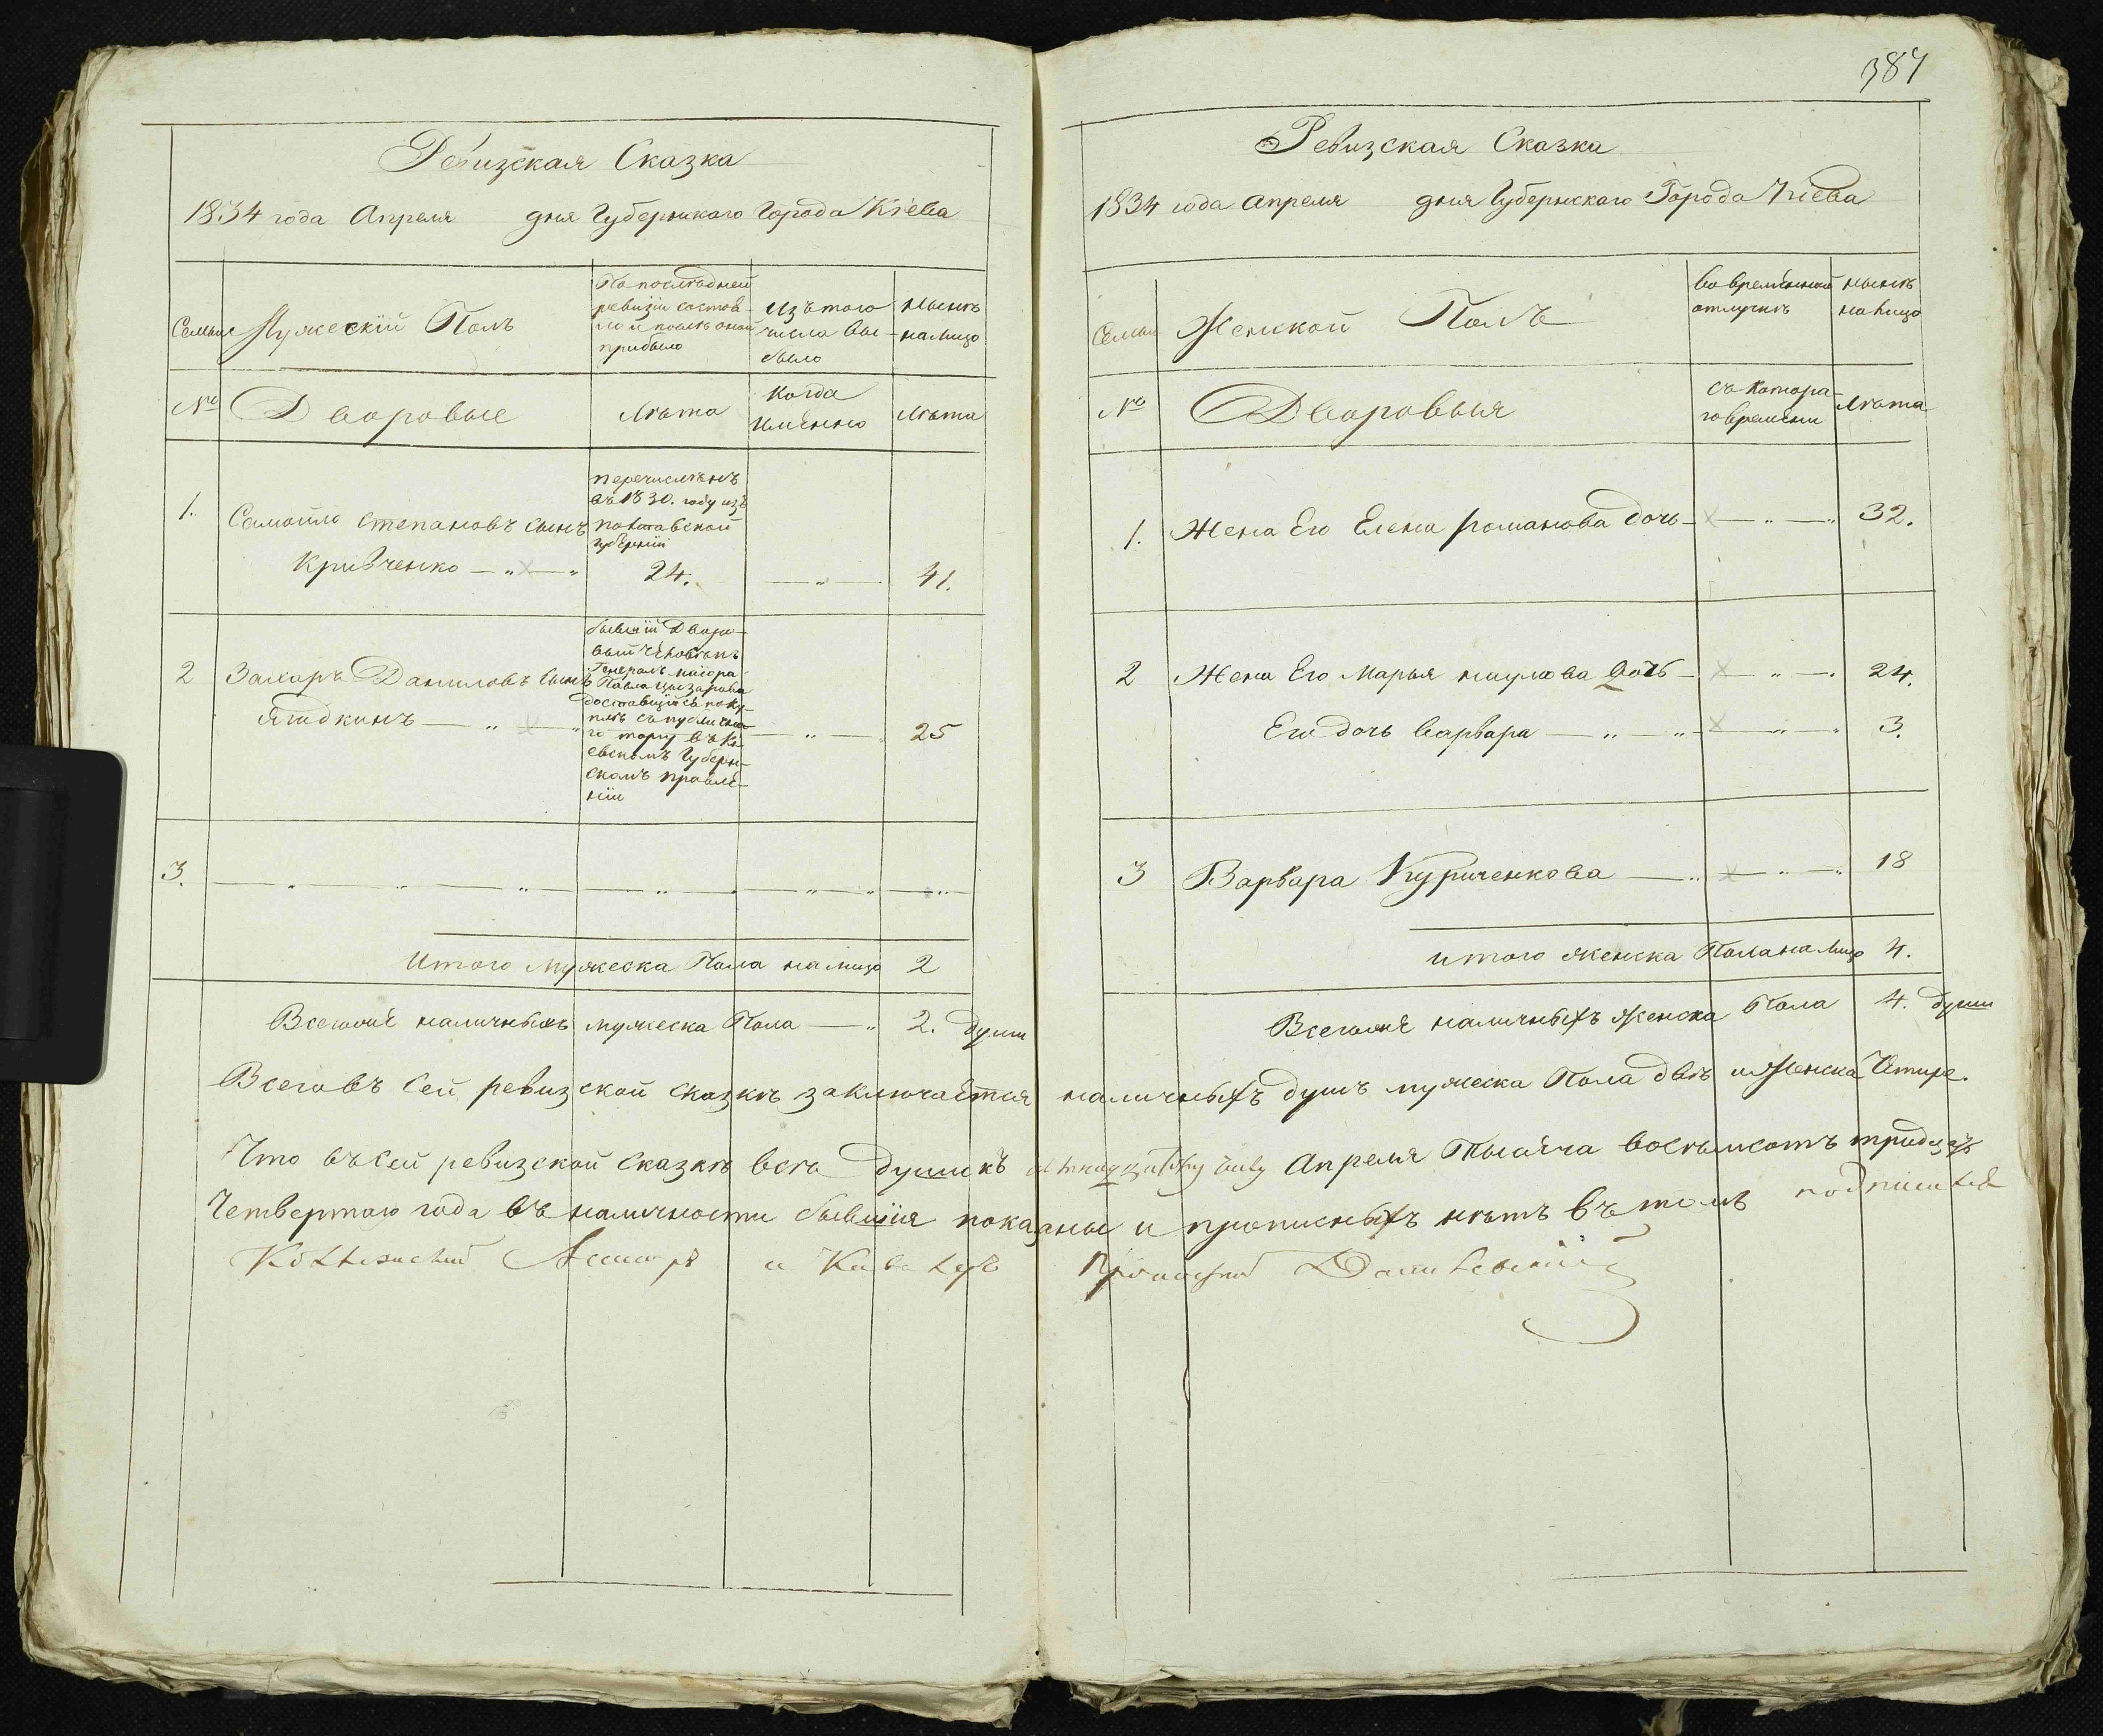 387
Ревизская Сказка
1834 года Апреля дня Губернского Города Кіева
Семьи
Мужескій Полъ
По последней
ревизіи состоя-
ло и после оной
прибыло
Изъ того
числа вы-
было
Ныне
на лицо
№
Дворовые
Лета
Когда
имянно
Лета
1.
Самойло Степановъ сынъ
Кривченко
перечисленъ
въ 1830. году изъ
Полтавской
губерніи
24.
41.
2
Захаръ Даниловъ сынъ
Ягодкинъ
бывшій Дворо-
вый человекъ
Генералъ маіора
Павла
доставшійся поку-
пкъ съ публична-
го торгу въ Кі-
евскомъ Губерн-
скомъ правле-
ніи
25
3.
Итого мужеска Пола на лицо 2
Всего наличныхъ мужеска Пола 2. души
Ревизская Сказка
1834 года Апреля дня Губернского Города Кіева
Семьи
Женской Полъ
Во временной
отлучкѣ
ныне
на лицо
№
Дворовыя
Съ котора-
го времени
Лета
1.
Жена Его Елена Романова дочь 32.
2
Жена Его Марья Наумова дочь 24.
Его дочь Варвара 3.
3
Варвара Куриченкова 18
итого женска Пола на лицо 4.
Всего наличныхъ женска Пола 4. души
Всего въ сей ревизской сказке заключается наличныхъ душъ мужеска Пола две и женска Четыре.
Что въ сей ревизской сказке все души къ Апреля Тысяча восемьсотъ тридцать
Четвертого года въ наличности бывшія показаны и прописныхъ нетъ въ томъ подписался
Коллежскій Асесоръ и Кавалеръ Данилевскій